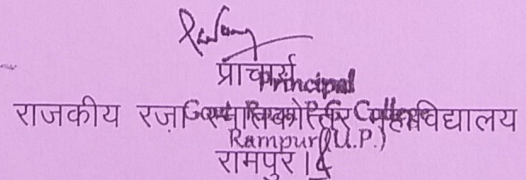 प्राचार्य
Principal
राजकीय रज़ा स्नातकोत्तर महाविद्यालय
Govt. Raza P. G. College
Rampur (U.P.)
रामपुर।